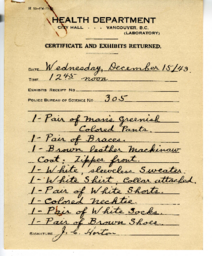 HEALTH DEPARTMENT
CITY HALL . . . . VANCOUVER, B.C.
(LABORATORY)
CERTIFICATE AND EXHIBITS RETURNED.
DATE Wednesday, December 15/43
TIME 12 45 noon
EXHIBITS RECEIPT No.
POLICE BUREAU OF SCIENCE No. 305
1- Pair of Man's Greenish
Colored Pants.
1- Pair of Braces.
1- Brown leather Mackinaw
Coat. Zipper front.
1- White, sleeveless Sweater.
1- White Shirt, collar attached.
1- Pair of White Shorts.
1- Colored Necktie
1- Pair of White Socks.
1- Pair of Brown Shoes
SIGNATURE J. F. Horton